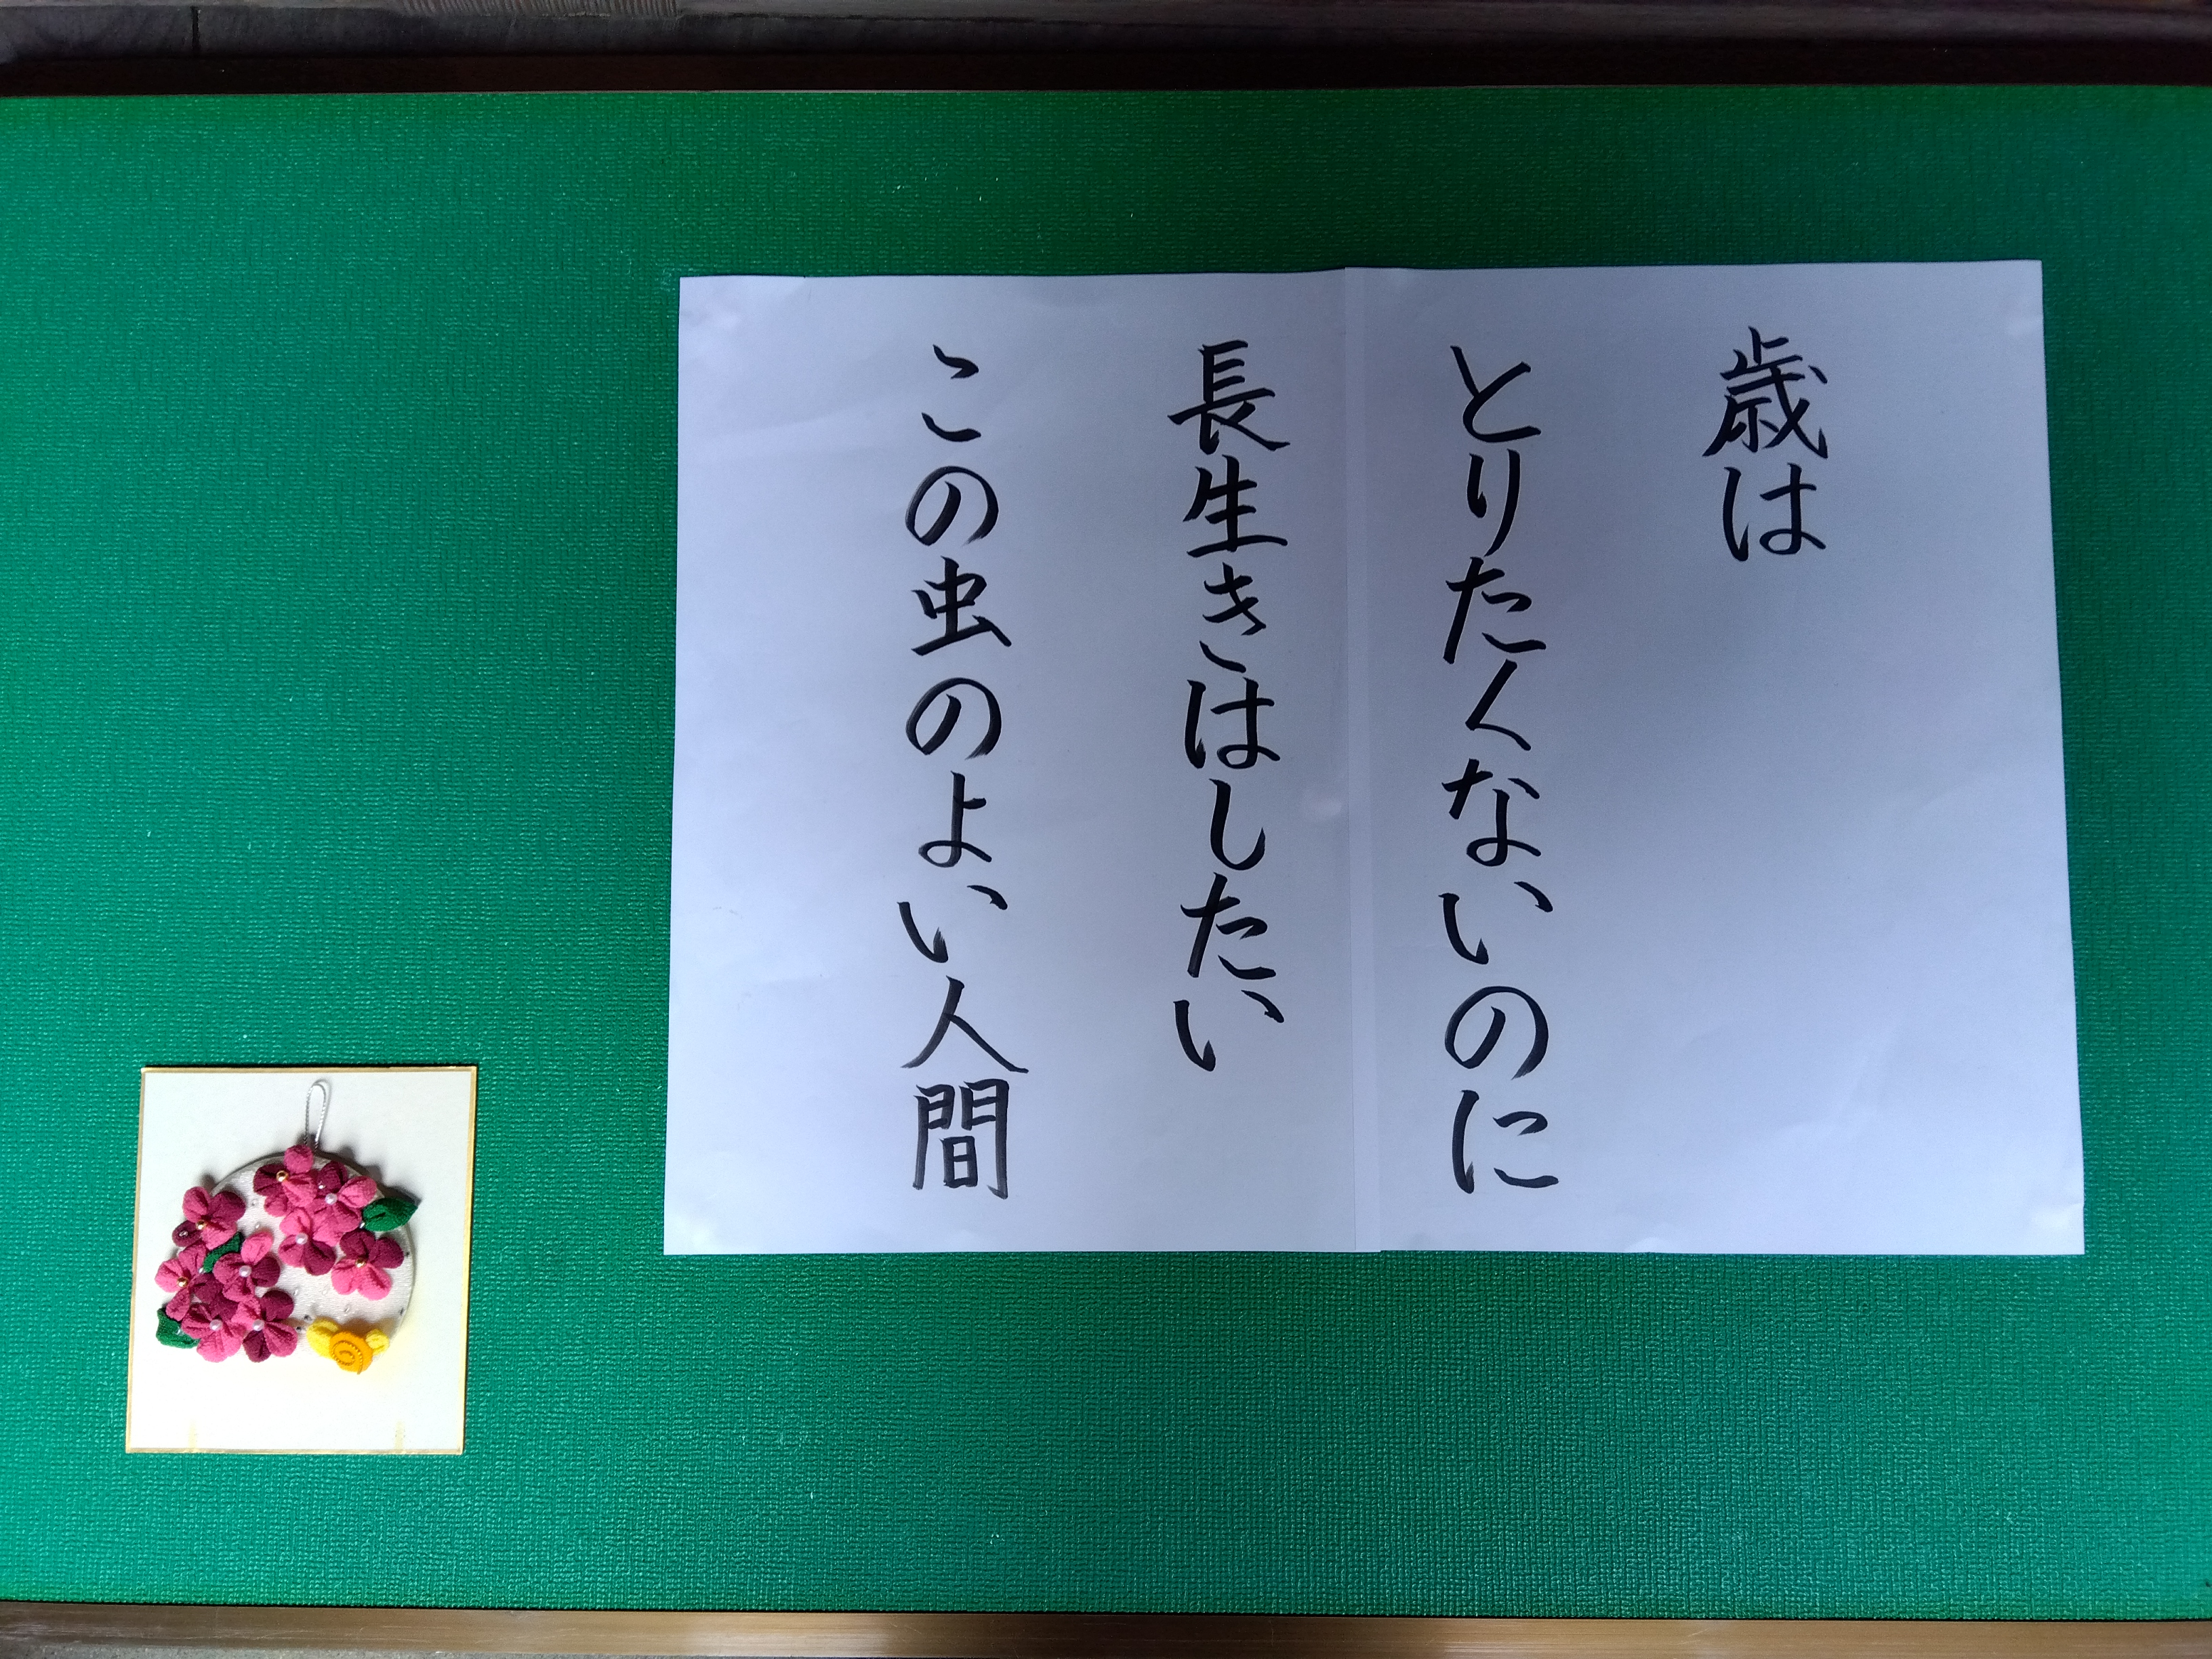 歳は
とりたくないのに
長生きはしたい
この虫のよい人間